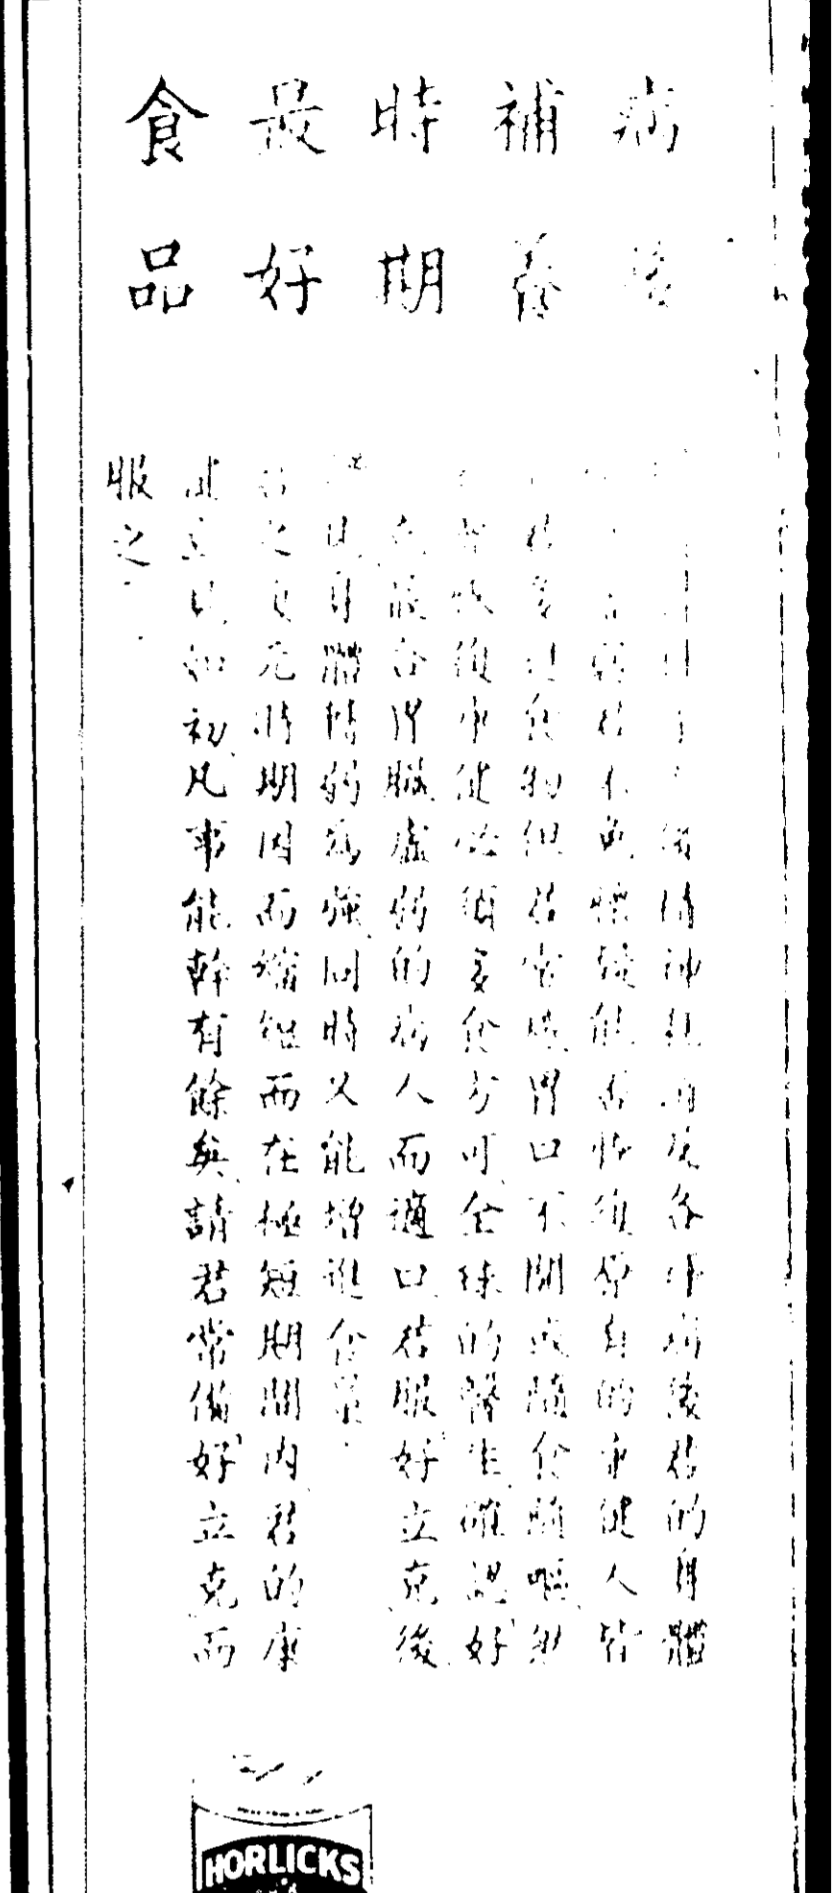 病後
補養
時期
最好
食品
精神耗損及各種病後君的身體
弱君不免懷疑能否恢復原身的康健人皆
君多進食物但君常覺胃口不開或隨食隨嘔
恢復康健必須多食方可全球的醫生確認好
克最合胃臟虛弱的病人而適口君服好立克後
見身體轉弱為強同時又能增進食量
君之復元時期因而縮短而在極短期間內君的康
健立見如初凡事能幹有餘矣請君常備好立克而
服之
HORLICKS